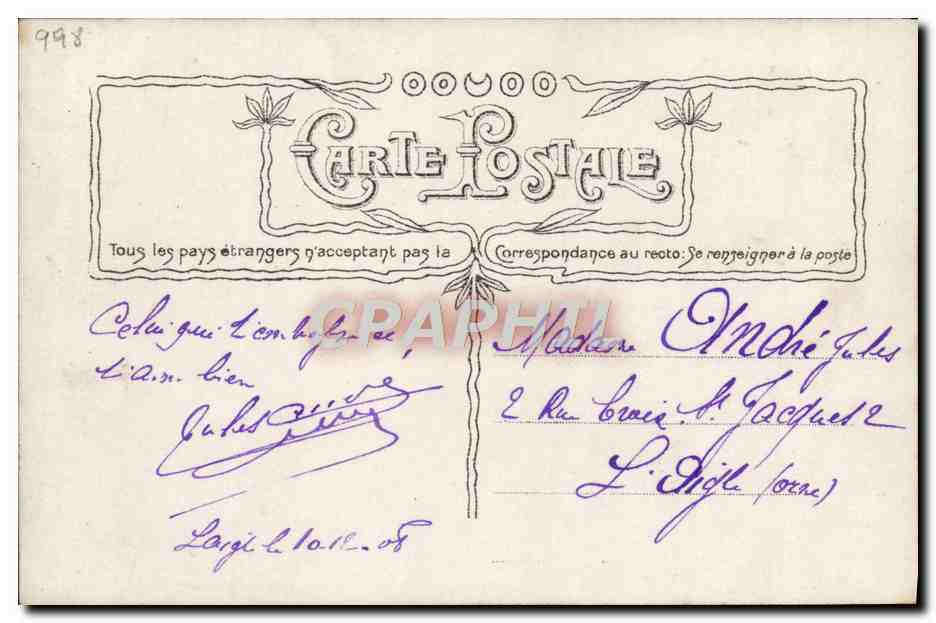 998
CARTE POSTALE
Tous les pays étrangers n'acceptant pas la Correspondance au recto: Se renseigner à la poste
CPAPHIL
Celui qui t'embrasse,
t'aim bien
Jules André
Laigle le 10-12-08
Madame André Jules
2 Rue Croix St Jacques 2
L'Aigle (orne)